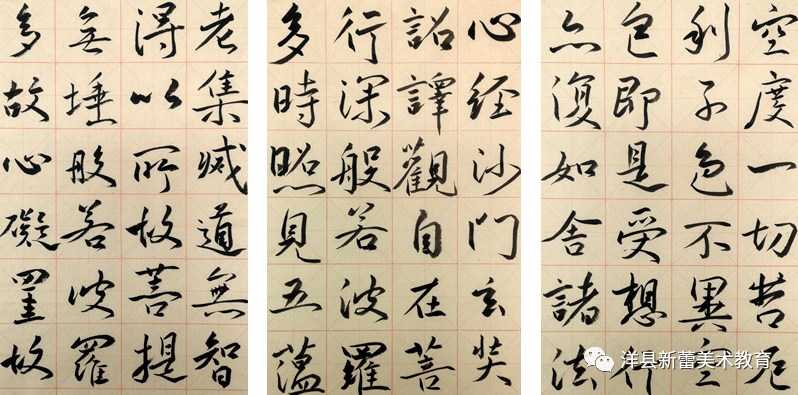 老集滅道無智
得以所故菩提
無埵般若波羅
多故心礙罣故
心經沙門玄奘
詔譯觀自在菩
行深般若波羅
多時照見五蘊
空度一切苦厄
利子色不異空
色即是受想行
亦復如舍諸法
洋县新蕾美术教育